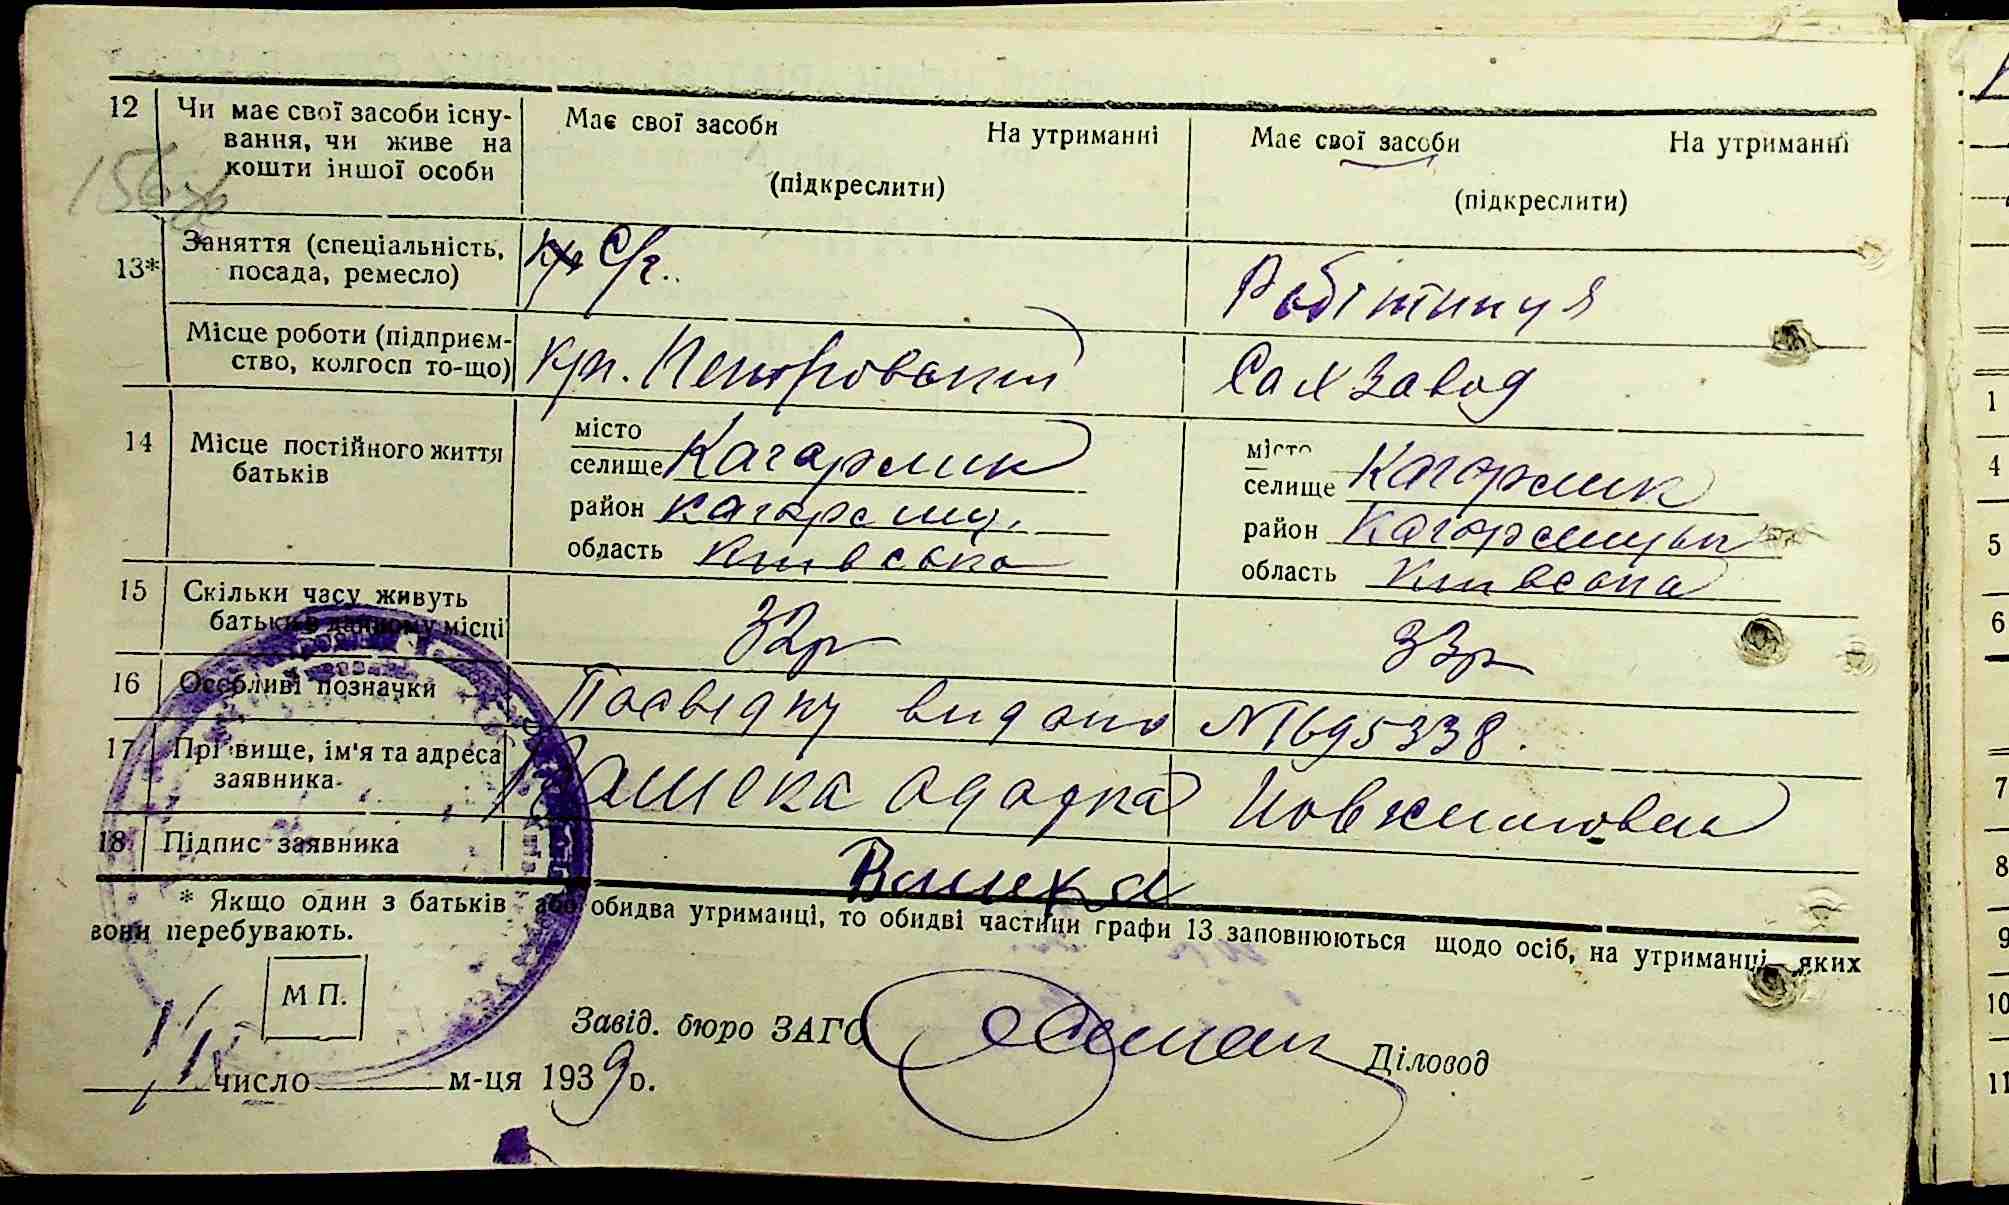 12 Чи має свої засоби існу- Має свої засоби На утриманні Має свої засоби На утриманні
вання, чи живе на
кошти іншої особи (підкреслити) (підкреслити)
156
13* Заняття (спеціальність, с/г. Робітниця
посада, ремесло)
Місце роботи (підприєм- Петровский Сахзавод
ство, колгосп то-що)
14 Місце постійного життя місто місто
батьків селище Кагарлик селище Кагарлик
район Кагарлиц. район Кагарлицьк
область Київська область Київська
15 Скільки часу живуть 32р 33р
батьки в данному місці
16 Особливі позначки Посвідку видано № 1695338.
17 Прізвище, ім'я та адреса Вашека
заявника
18 Підпис заявника Вашека
* Якщо один з батьків або обидва утриманці, то обидві частини графи 13 заповнюються щодо осіб, на утриманці яких
вони перебувають.
М П.
Завід. бюро ЗАГС Діловод
число м-ця 1939 р.
1
4
5
6
7
8
9
10
11